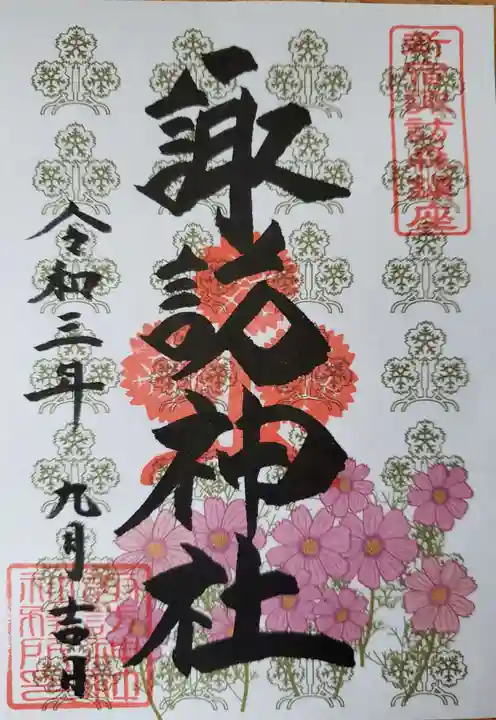 新宿諏訪森鎮座
諏訪神社
令和三年 九月吉日